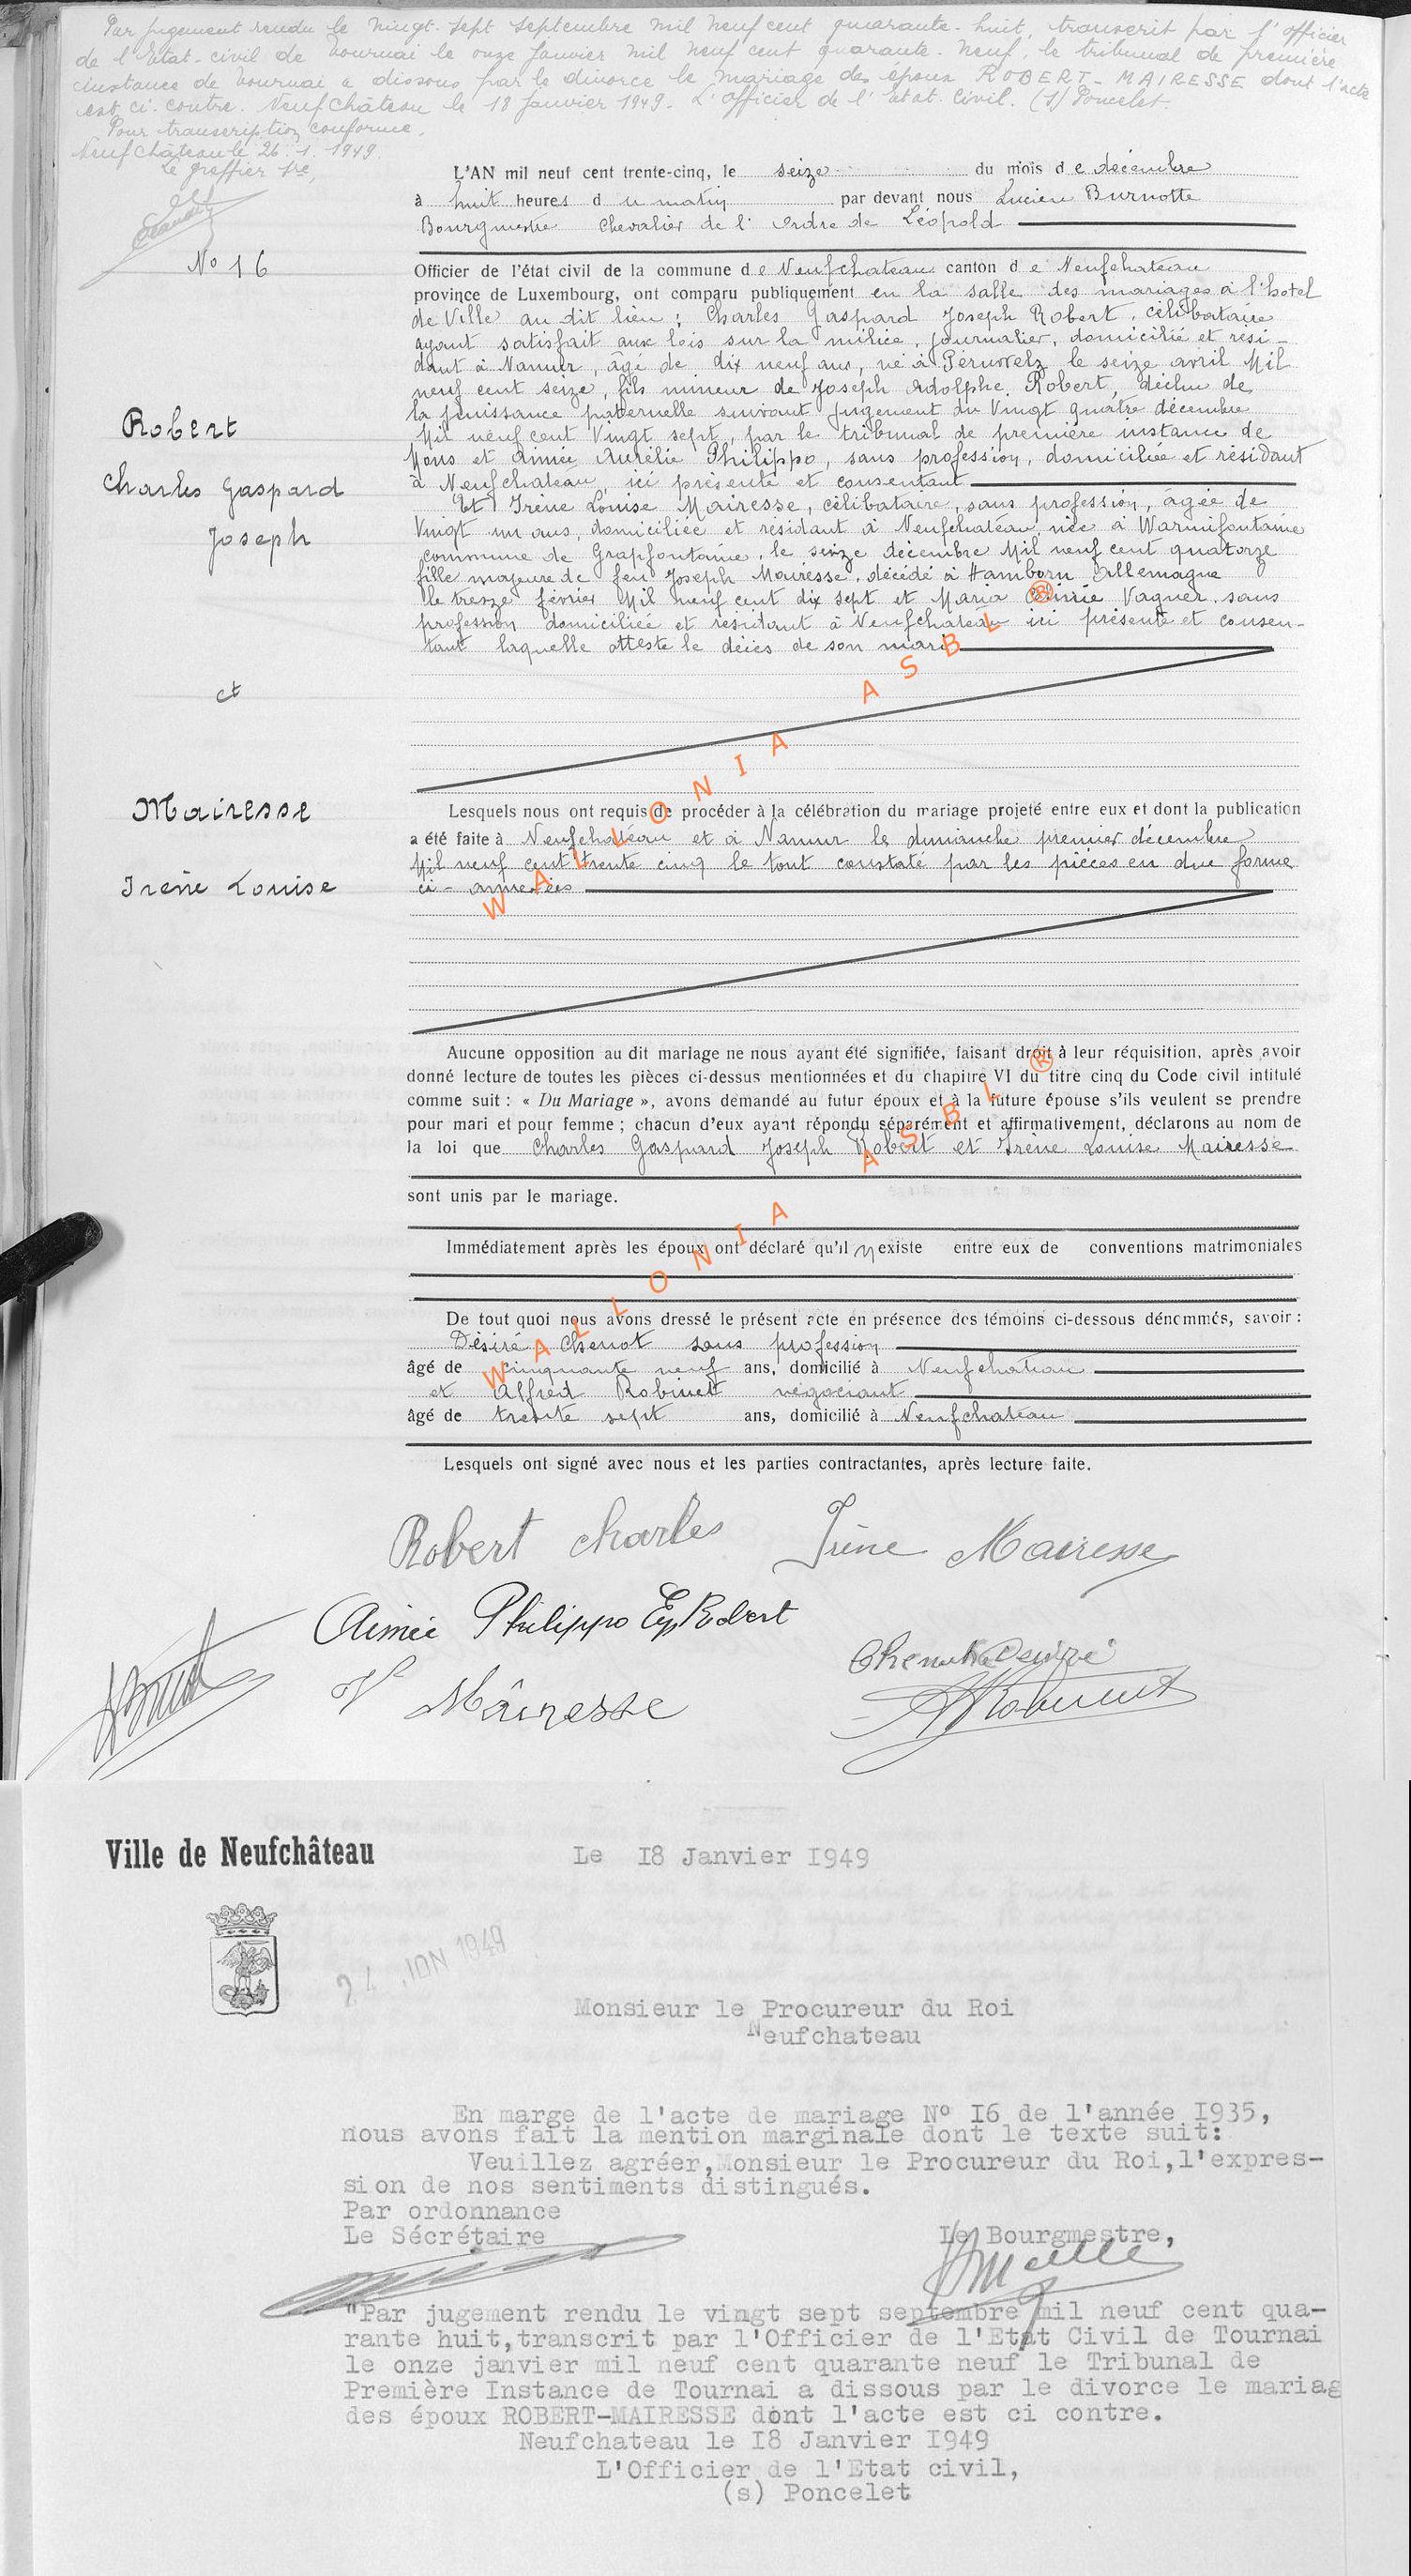 Par jugement rendu le vingt-sept septembre mil neuf cent quarante-huit, transcrit par l'officier
de l'Etat-civil de Tournai le onze Janvier mil neuf cent quarante-neuf, le tribunal de première
instance de Tournai a dissous par le divorce le mariage des époux ROBERT-MAIRESSE dont l'acte
est ci-contre. Neufchâteau le 18 Janvier 1949. L'officier de l'Etat-Civil. (s) Poncelet.
Pour transcription conforme,
Neufchâteau le 26.1.1949.
Le greffier
L'AN mil neuf cent trente-cinq, le seize du mois de décembre
à huit heures du matin par devant nous Lucien Burnotte
Bourgmestre Chevalier de l'Ordre de Léopold
No 16
Officier de l'état civil de la commune de Neufchateau canton de Neufchateau
province de Luxembourg, ont comparu publiquement en la salle des mariages à l'hotel
de Ville au dit lieu : Charles Gaspard Joseph Robert, célibataire
ayant satisfait aux lois sur la milice, journalier, domicilié et rési-
dant à Namur, âgé de dix neuf ans, né à Péruwelz le seize avril Mil
neuf cent seize, fils mineur de Joseph Adolphe Robert, déchu de
la puissance paternelle suivant jugement du Vingt quatre décembre
Mil neuf cent Vingt sept, par le tribunal de première instance de
Mons et Aimée Aurélie Philippo, sans profession, domiciliée et résidant
à Neufchateau, ici présente et consentant
Robert
Charles Gaspard
Joseph
Et Irène Louise Mairesse, célibataire, sans profession, âgée de
Vingt un ans, domiciliée et résidant à Neufchateau, née à Warmifontaine
commune de Grapfontaine, le seize décembre Mil neuf cent quatorze
fille majeure de feu Joseph Mairesse, décédé à Hamborn Allemagne
le treize février Mil neuf cent dix sept et Maria Vagner, sans
profession domiciliée et résidant à Neufchateau ici présente et consen-
tant laquelle atteste le décès de son mari
et
Mairesse
Irène Louise
Lesquels nous ont requis de procéder à la célébration du mariage projeté entre eux et dont la publication
a été faite à Neufchateau et à Namur le dimanche premier décembre
Mil neuf cent trente cinq le tout constaté par les pièces en due forme
ci-annexées
WALLONIA ASBL ®
Aucune opposition au dit mariage ne nous ayant été signifiée, faisant droit à leur réquisition, après avoir
donné lecture de toutes les pièces ci-dessus mentionnées et du chapitre VI du titre cinq du Code civil intitulé
comme suit : « Du Mariage », avons demandé au futur époux et à la future épouse s'ils veulent se prendre
pour mari et pour femme ; chacun d'eux ayant répondu séparément et affirmativement, déclarons au nom de
la loi que Charles Gaspard Joseph Robert et Irène Louise Mairesse
sont unis par le mariage.
Immédiatement après les époux ont déclaré qu'il n'existe entre eux de conventions matrimoniales
De tout quoi nous avons dressé le présent acte en présence des témoins ci-dessous dénommés, savoir :
Désiré Chenot sans profession
âgé de cinquante neuf ans, domicilié à Neufchateau
et Alfred Robinet négociant
âgé de trente sept ans, domicilié à Neufchateau
WALLONIA ASBL ®
Lesquels ont signé avec nous et les parties contractantes, après lecture faite.
Robert Charles Irène Mairesse
Aimée Philippo Ep Robert
Ve Mairesse
Ville de Neufchâteau
Le I8 Janvier I949
24 JAN 1949
Monsieur le Procureur du Roi
Neufchateau
En marge de l'acte de mariage N° I6 de l'année I935,
nous avons fait la mention marginale dont le texte suit:
Veuillez agréer,Monsieur le Procureur du Roi,l'expres-
sion de nos sentiments distingués.
Par ordonnance
Le Sécrétaire Le Bourgmestre,
"Par jugement rendu le vingt sept septembre mil neuf cent qua-
rante huit,transcrit par l'Officier de l'Etat Civil de Tournai
le onze janvier mil neuf cent quarante neuf le Tribunal de
Première Instance de Tournai a dissous par le divorce le mariag
des époux ROBERT-MAIRESSE dont l'acte est ci contre.
Neufchateau le I8 Janvier I949
L'Officier de l'Etat civil,
(s) Poncelet